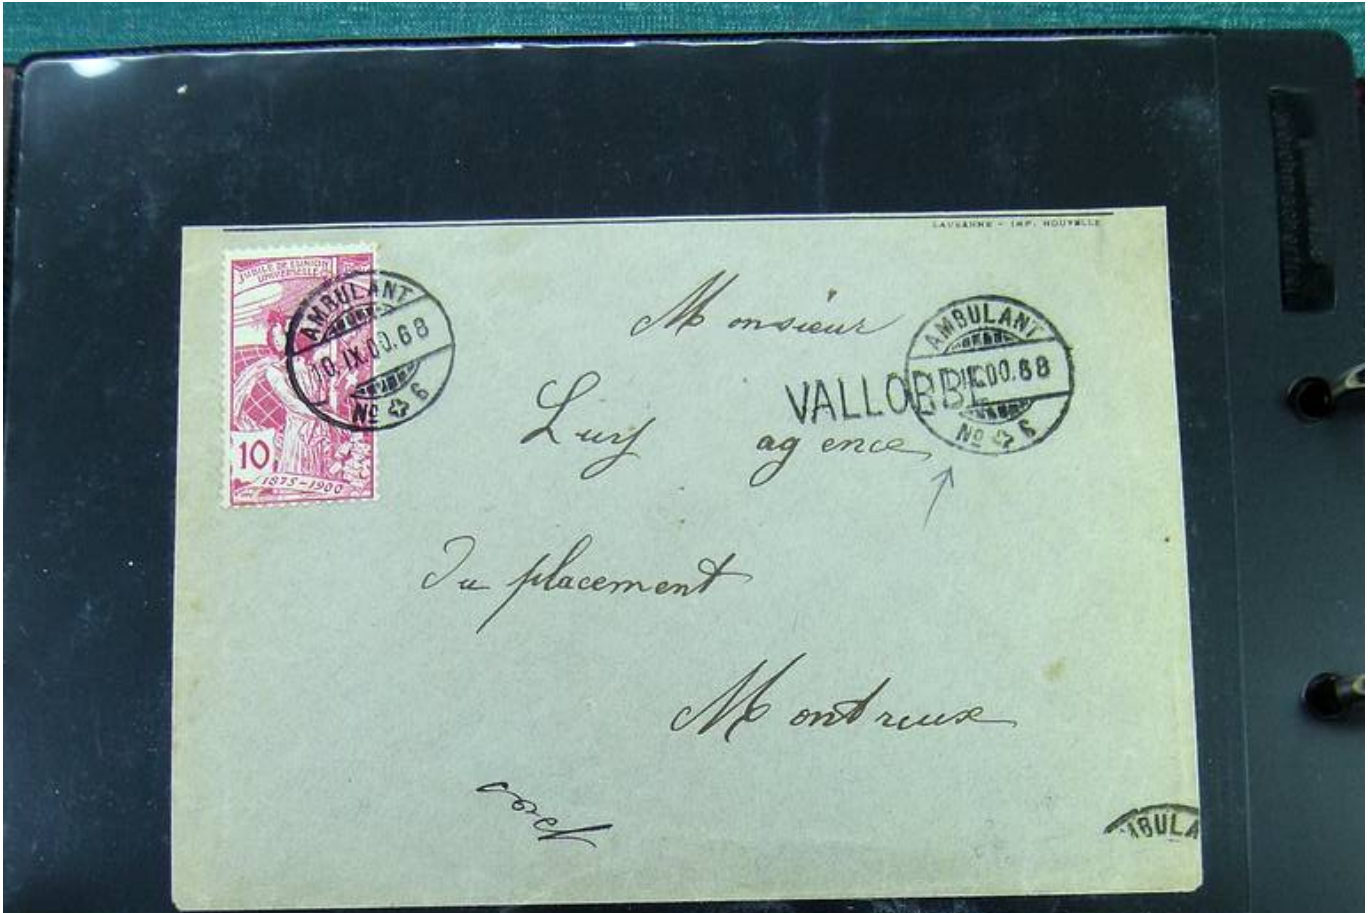 LAUSANNE - IMP. NOUVELLE
JUBILÉ DE L'UNION
UNIVERSELLE
10
1875-1900
AMBULANT
10.IX.00.68
No 6
Monsieur
VALLORBE
AMBULANT
IX.00.68
No 6
agence
Du placement
Montreux
AMBULA